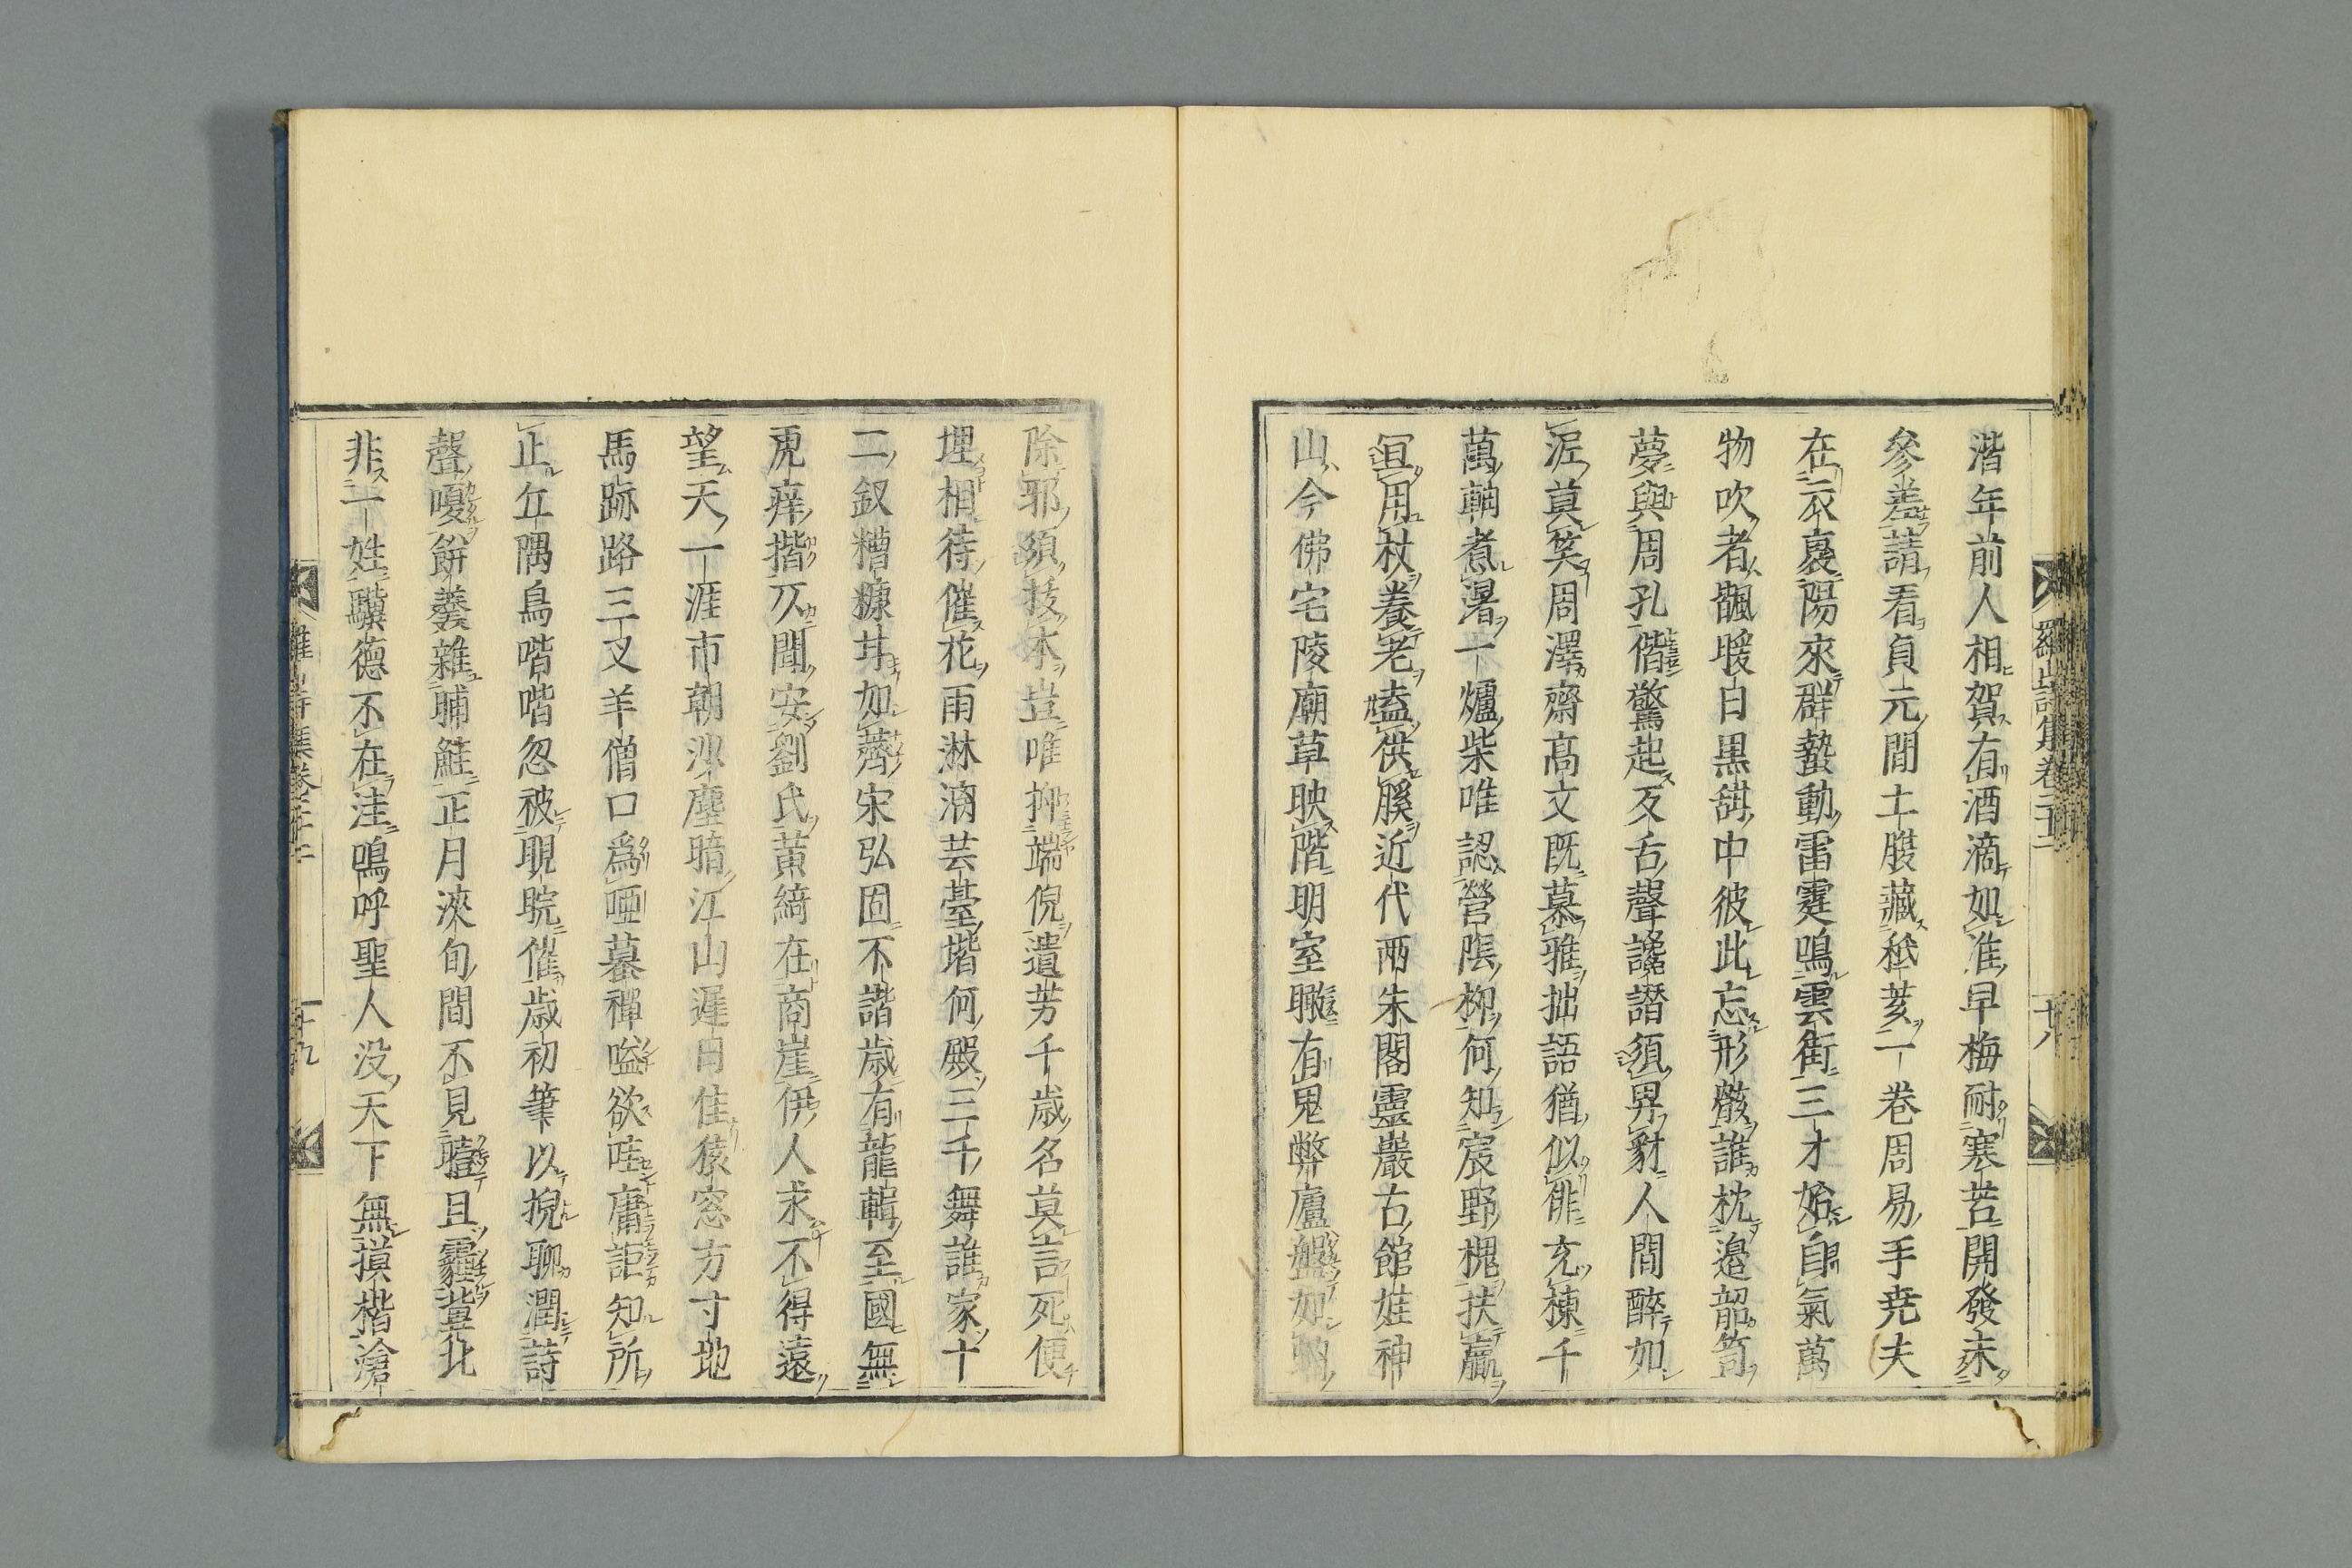 羅山詩集卷三十二
十八
湝年前人相賀有酒滴如准早梅耐寒苦開發未
參差請看貞元間土膄藏秪荄一卷周易手尭夫
在衣裏陽來群蟄動雷霆鳴雲街三才始自氣萬
物吹者䬌暖白黒甜中彼此忘形骸誰枕邉韶笥
夢與周孔偕驚起反舌聲讒譖須畀豺人間醉如
泥莫笑周澤齋髙文既慕雅拙語猶似俳充棟千
萬軸煮湯一爐柴唯認營陰柳何知宸野槐扶羸
宜用杖養老盍供膎近代兩朱閣靈巖古館娃神
山今佛宅陵廟草映階明室瞰有鬼弊廬盤如
除邪須拔本豈唯抑端倪遺芳千歳名莫言死便
埋相待催花雨淋滴芸䑓堦何殿三千舞誰家十
二釵糟糠甘如薺宋弘固不諧歳有龍輯至國無
虎痒揩不聞安劉氏黄綺在商崖伊人求不得遠
望天一涯市朝沙塵暗江山遅日佳猿窓方寸地
馬跡路三叉羊僧口爲啞暮禪嗌欲哇庸詎知所
止丘隅鳥喈喈忽被睍睆催歳初筆以掜聊潤詩
聲嗄餅羹雜脯鮭正月浹旬間不見曀且霾冀北
非一姓驥德不在洼鳴呼聖人没天下無摸楷滄
羅山詩集卷三十二
十九